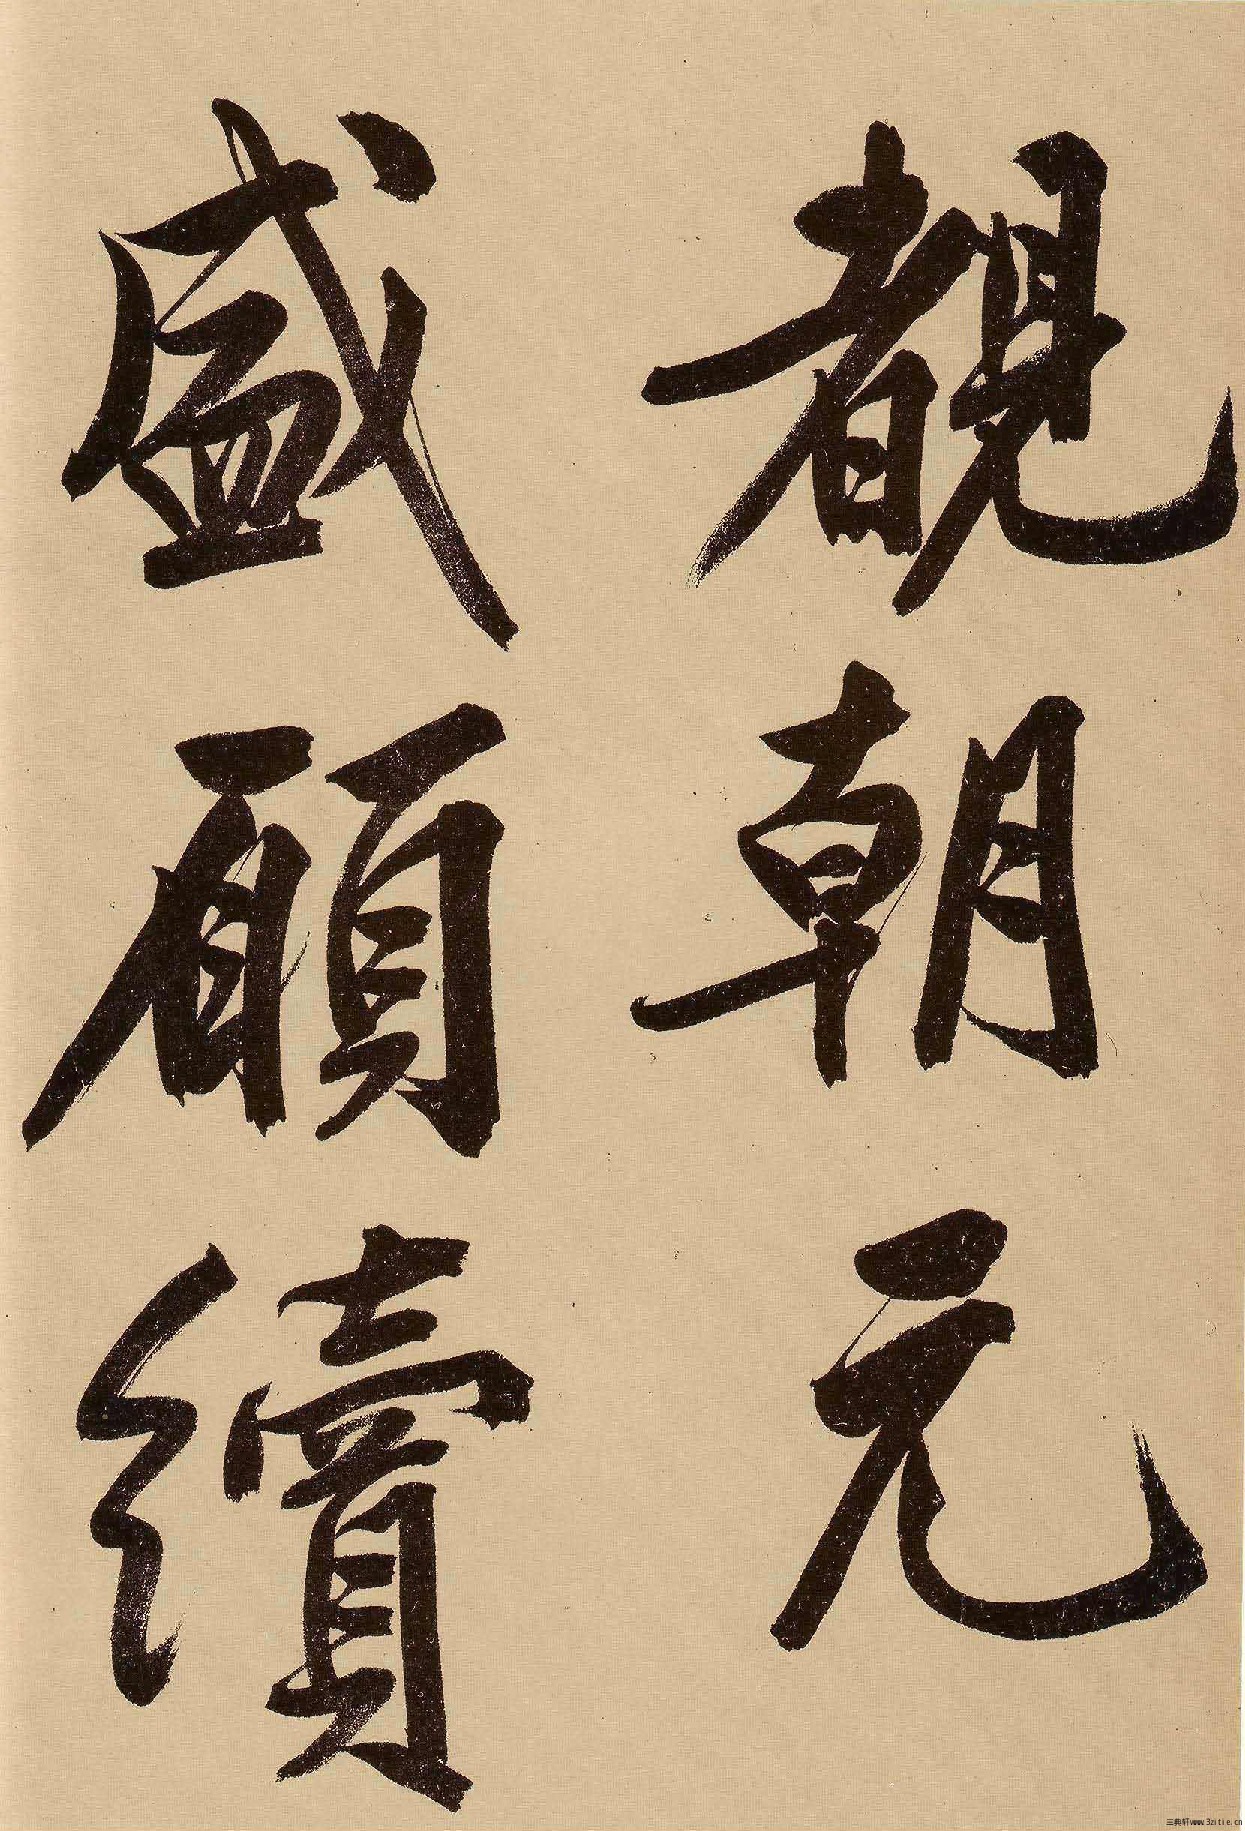 覩朝元
盛願續
三典轩www.3zitie.cn